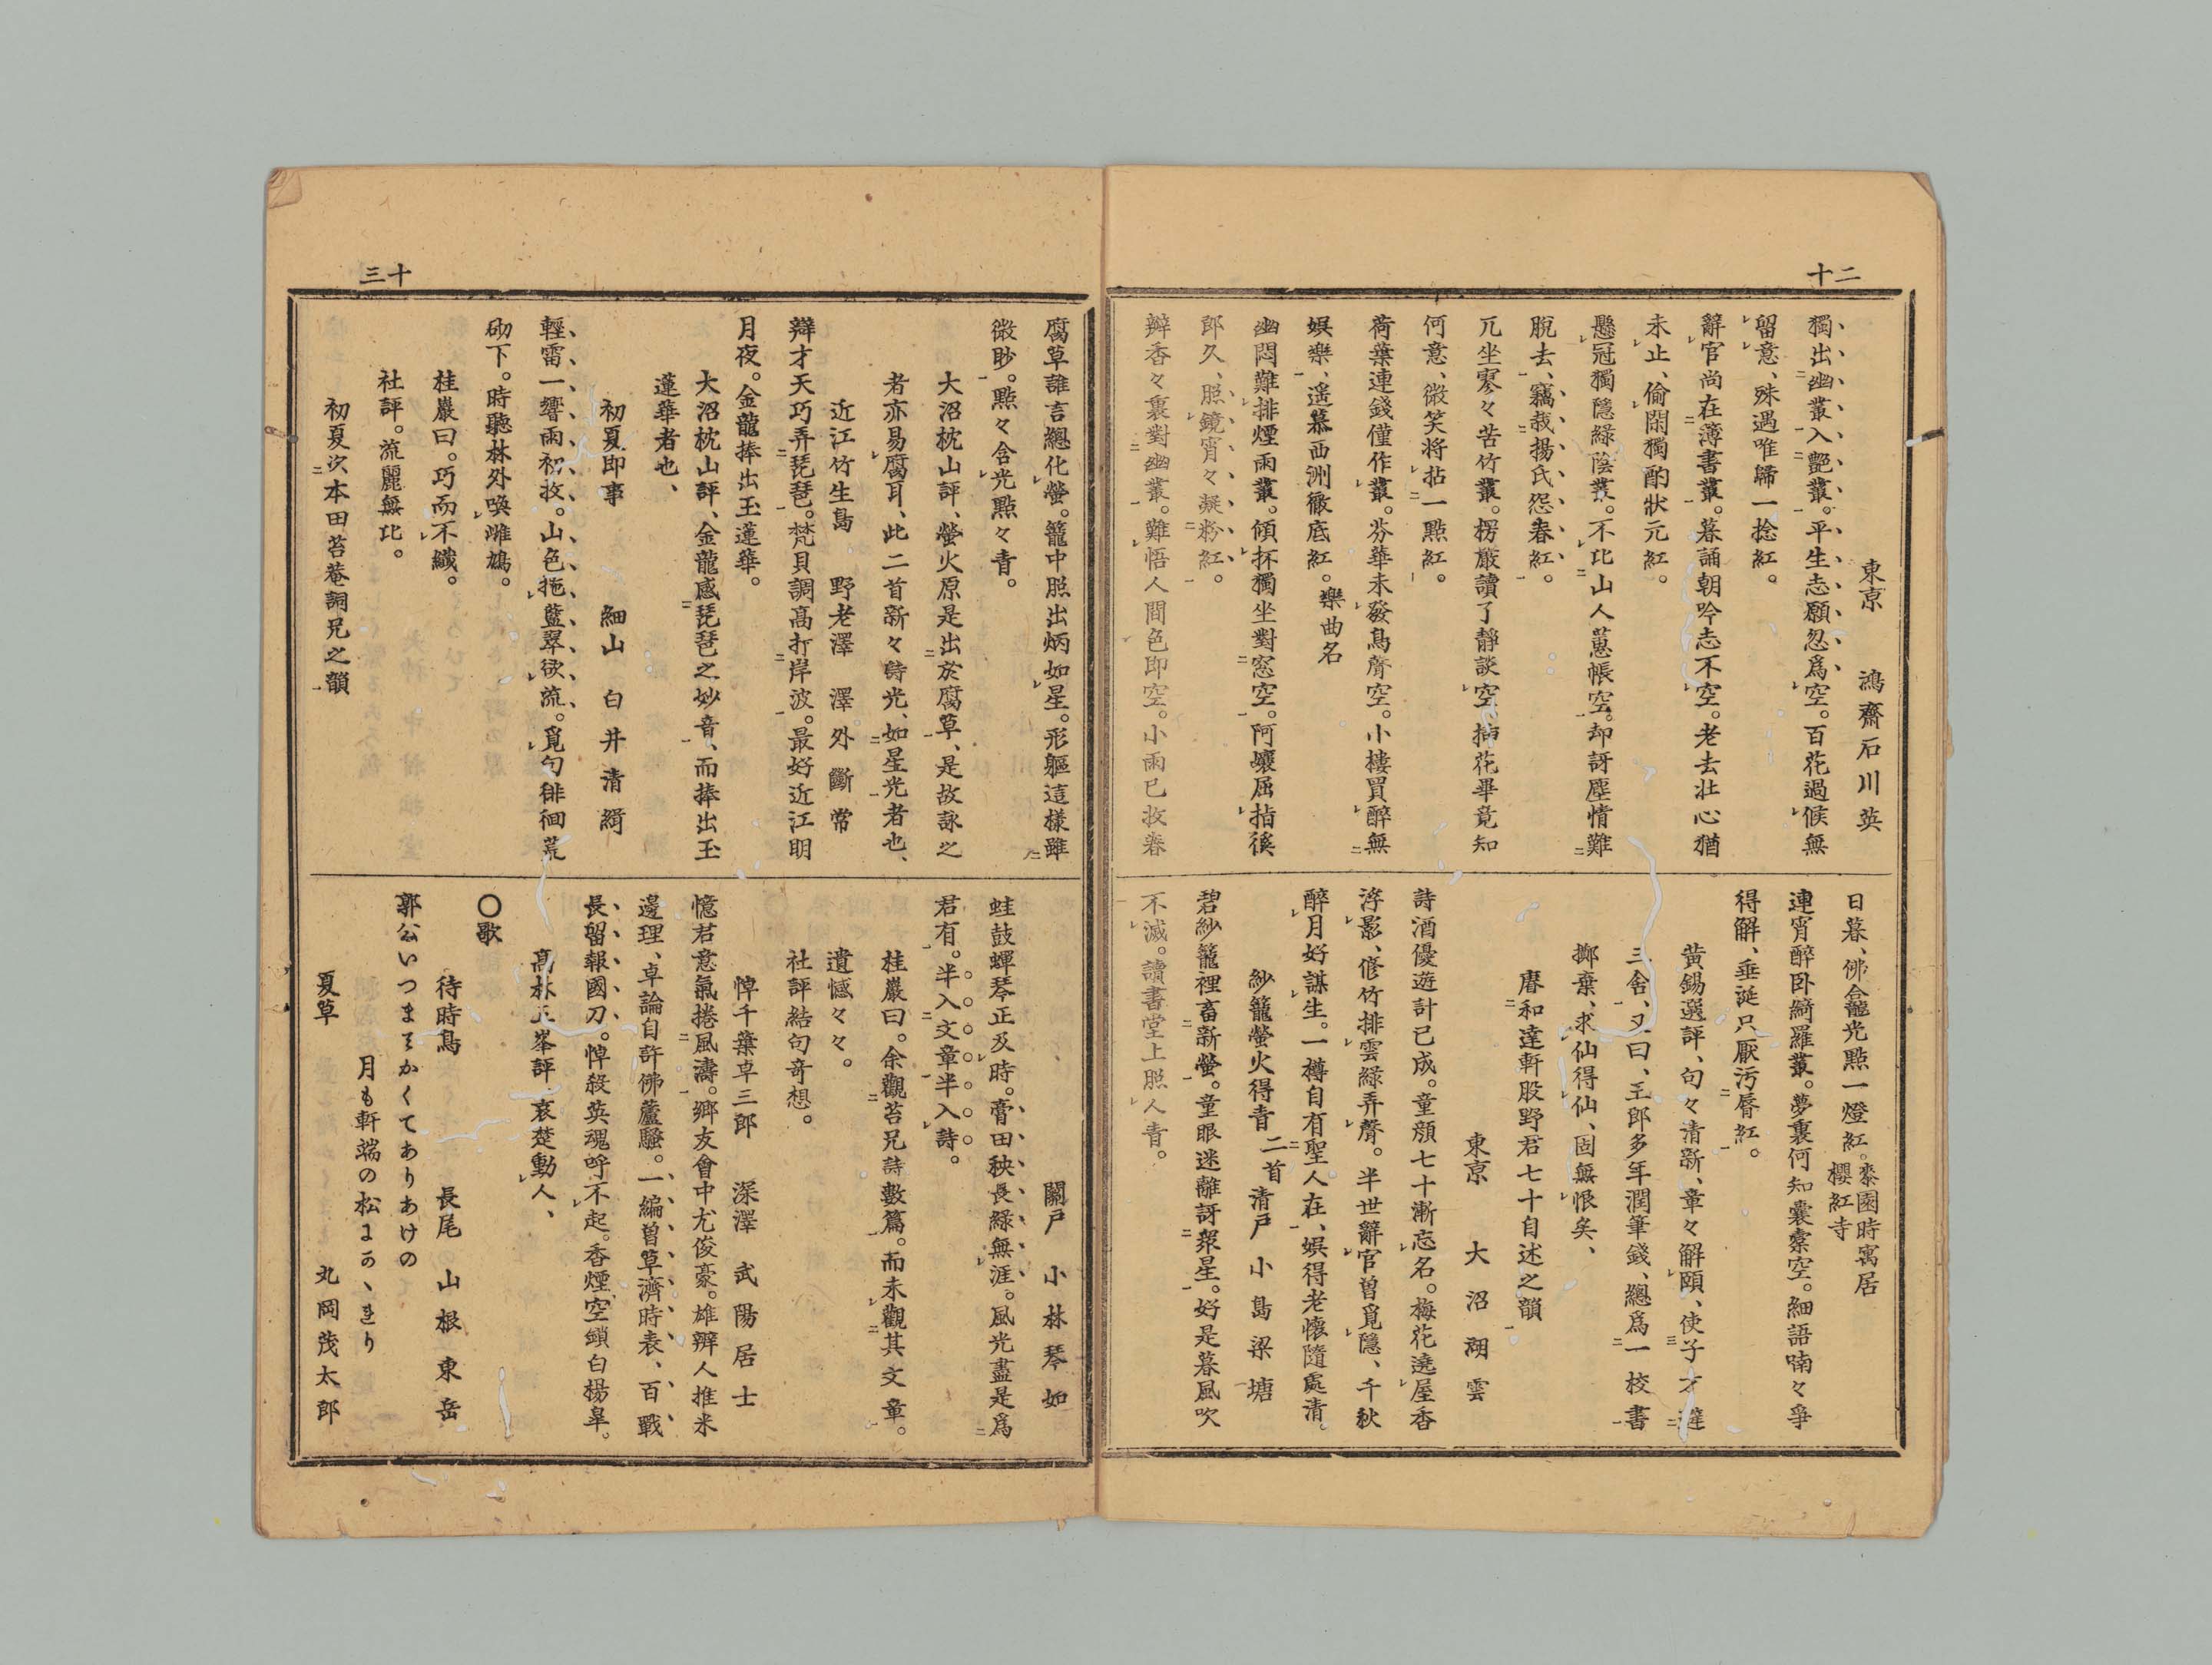 十二
東京　鴻齋石川英
獨出幽叢入艷叢。平生志願忽爲空。百花過候無
留意、殊遇唯歸一捻紅。
辭官尚在薄書叢。暮誦朝吟志不空。老去壯心猶
未止、偷閑獨酌狀元紅。
懸冠獨隱綠陰叢。不比山人蕙帳空。却訝塵情難
脫去、竊栽揚氏怨春紅。
兀坐寥々苦竹叢。楞嚴讀了靜談空。拈花畢竟知
何意、微笑将拈一點紅。
荷葉連錢僅作叢。芬華未發鳥聲空。小樓買醉無
娯樂、遥慕西洲徹底紅。樂曲名
幽悶難排煙雨叢。傾抔獨坐對窓空。阿孃屈指徯
郎久、照鏡宵々凝粉紅。
辮香々裏對幽叢。難悟人間色即空。小雨已收春
日暮、佛龕光點一燈紅。黍園時寓居櫻紅寺
連宵醉卧綺羅叢。夢裏何知嚢橐空。細語喃々爭
得解、垂涎只厭汚脣紅。
黃錫選評、句々清新、章々解頤、使子才避
三舍、又曰、王郎多年潤筆錢、總爲一校書
擲棄、求仙得仙、固無恨矣、
賡和達軒股野君七十自述之韻
東京　大沼湖雲
詩酒優遊計已成。童顏七十漸忘名。梅花遶屋香
浮影、修竹排雲綠弄聲。半世辭官曽覓隱、千秋
醉月好謀生。一樽自有聖人在、娯得老懷隨處清。
紗籠螢火得青 二首　清戸　小島梁塘
碧紗籠裡畜新螢。童眼迷離訝衆星。好是暮風吹
不滅。讀書堂上照人青。
十三
腐草誰言總化螢。籠中照出炳如星。形軀這樣雖
微眇。點々含光點々青。
大沼枕山評、螢火原是出於腐草、是故詠之
者亦易腐耳、此二首新々詩光、如星光者也、
近江竹生島　野老澤　澤外斷常
辯才天巧弄琵琶。梵貝調高打岸波。最好近江明
月夜。金龍捧出玉蓮華。
大沼枕山評、金龍感琵琶之妙音、而捧出玉
蓮華者也、
初夏即事　細山　白井清𦂶
輕雷一響雨初收。山色拖藍翠欲流。覓句徘徊荒
砌下。時聽林外喚雌鳩。
桂巖曰。巧而不纖。
社評。流麗無比。
初夏次本田苔菴詞兄之韻
關戸　小林琴如
蛙鼓蟬琴正及時。膏田秧長綠無涯。風光盡是爲
君有。半入文章半入詩。
桂巖曰。余觀苔兄詩數篇。而未觀其文章。
遺憾々々。
社評結句奇想。
悼千葉卓三郎　深澤　武陽居士
憶君意氣捲風濤。鄉友會中尤俊豪。雄辨人推米
邊理、卓論自許佛蘆騷。一編曽草濟時表、百戰
長留報國刀。悼殺英魂呼不起。香煙空鎖白楊皐。
高林玉峯評、哀楚動人、
〇歌
待時鳥　長尾　山根東岳
郭公いつまてかくてありあけの
月も軒端の松にかゝれり
夏草　丸岡茂太郎